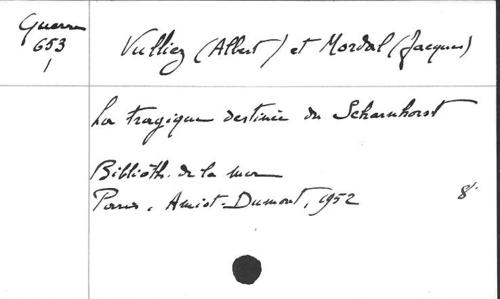 Guerre
653
1
Vulliez (Albert) et Mordal (Jacques)
La tragique destinée du Scharnhorst
Biblioth. de la mer
Paris, Amiot-Dumont, 1952 8°